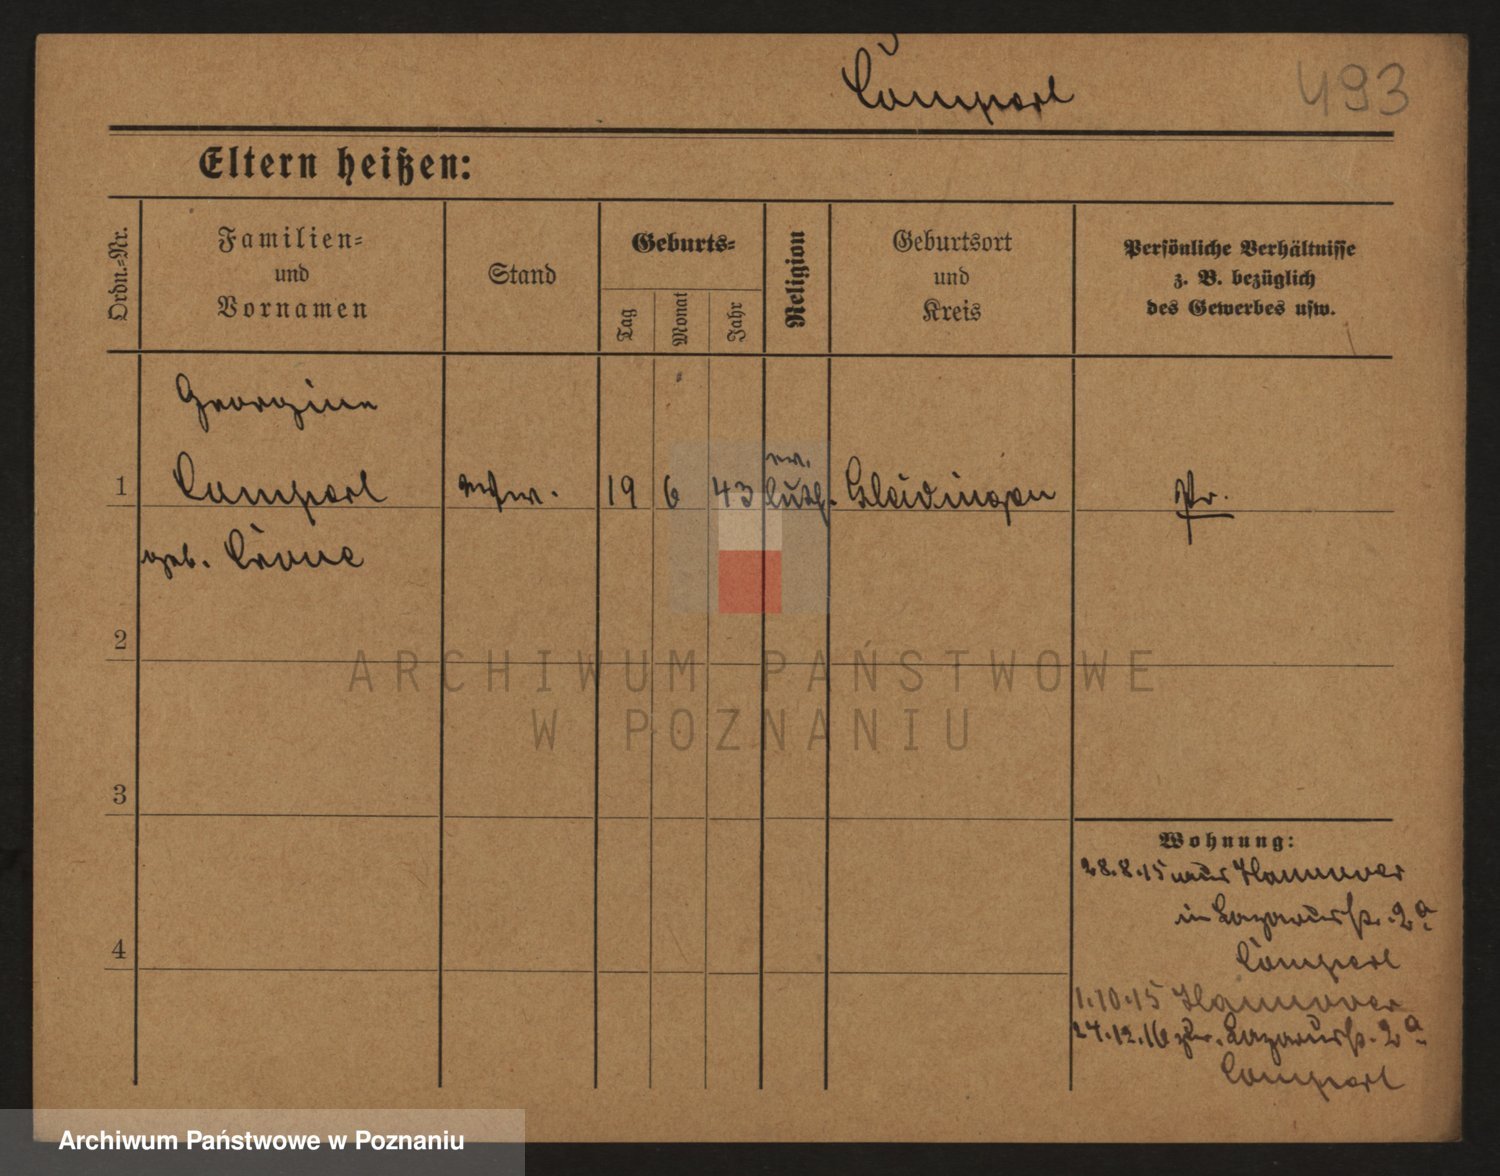 Campert
493
Eltern heißen:
Ordn.-Nr.
Familien-
und
Vornamen
Stand
Geburts-
Tag
Monat
Jahr
Religion
Geburtsort
und
Kreis
Persönliche Verhältnisse
z. B. bezüglich
des Gewerbes usw.
Georgine
1 Campert 19 6 43 luth. Gleidingen Pr.
ev.
geb. Crone
2
3
4
Wohnung:
28.8.15 aus Hannover
in Lazarusstr. 2a
Campert
1.10.15 Hannover
27.12.16 zur. Lazarusstr. 2a
Campert
ARCHIWUM PAŃSTWOWE
W POZNANIU
Archiwum Państwowe w Poznaniu